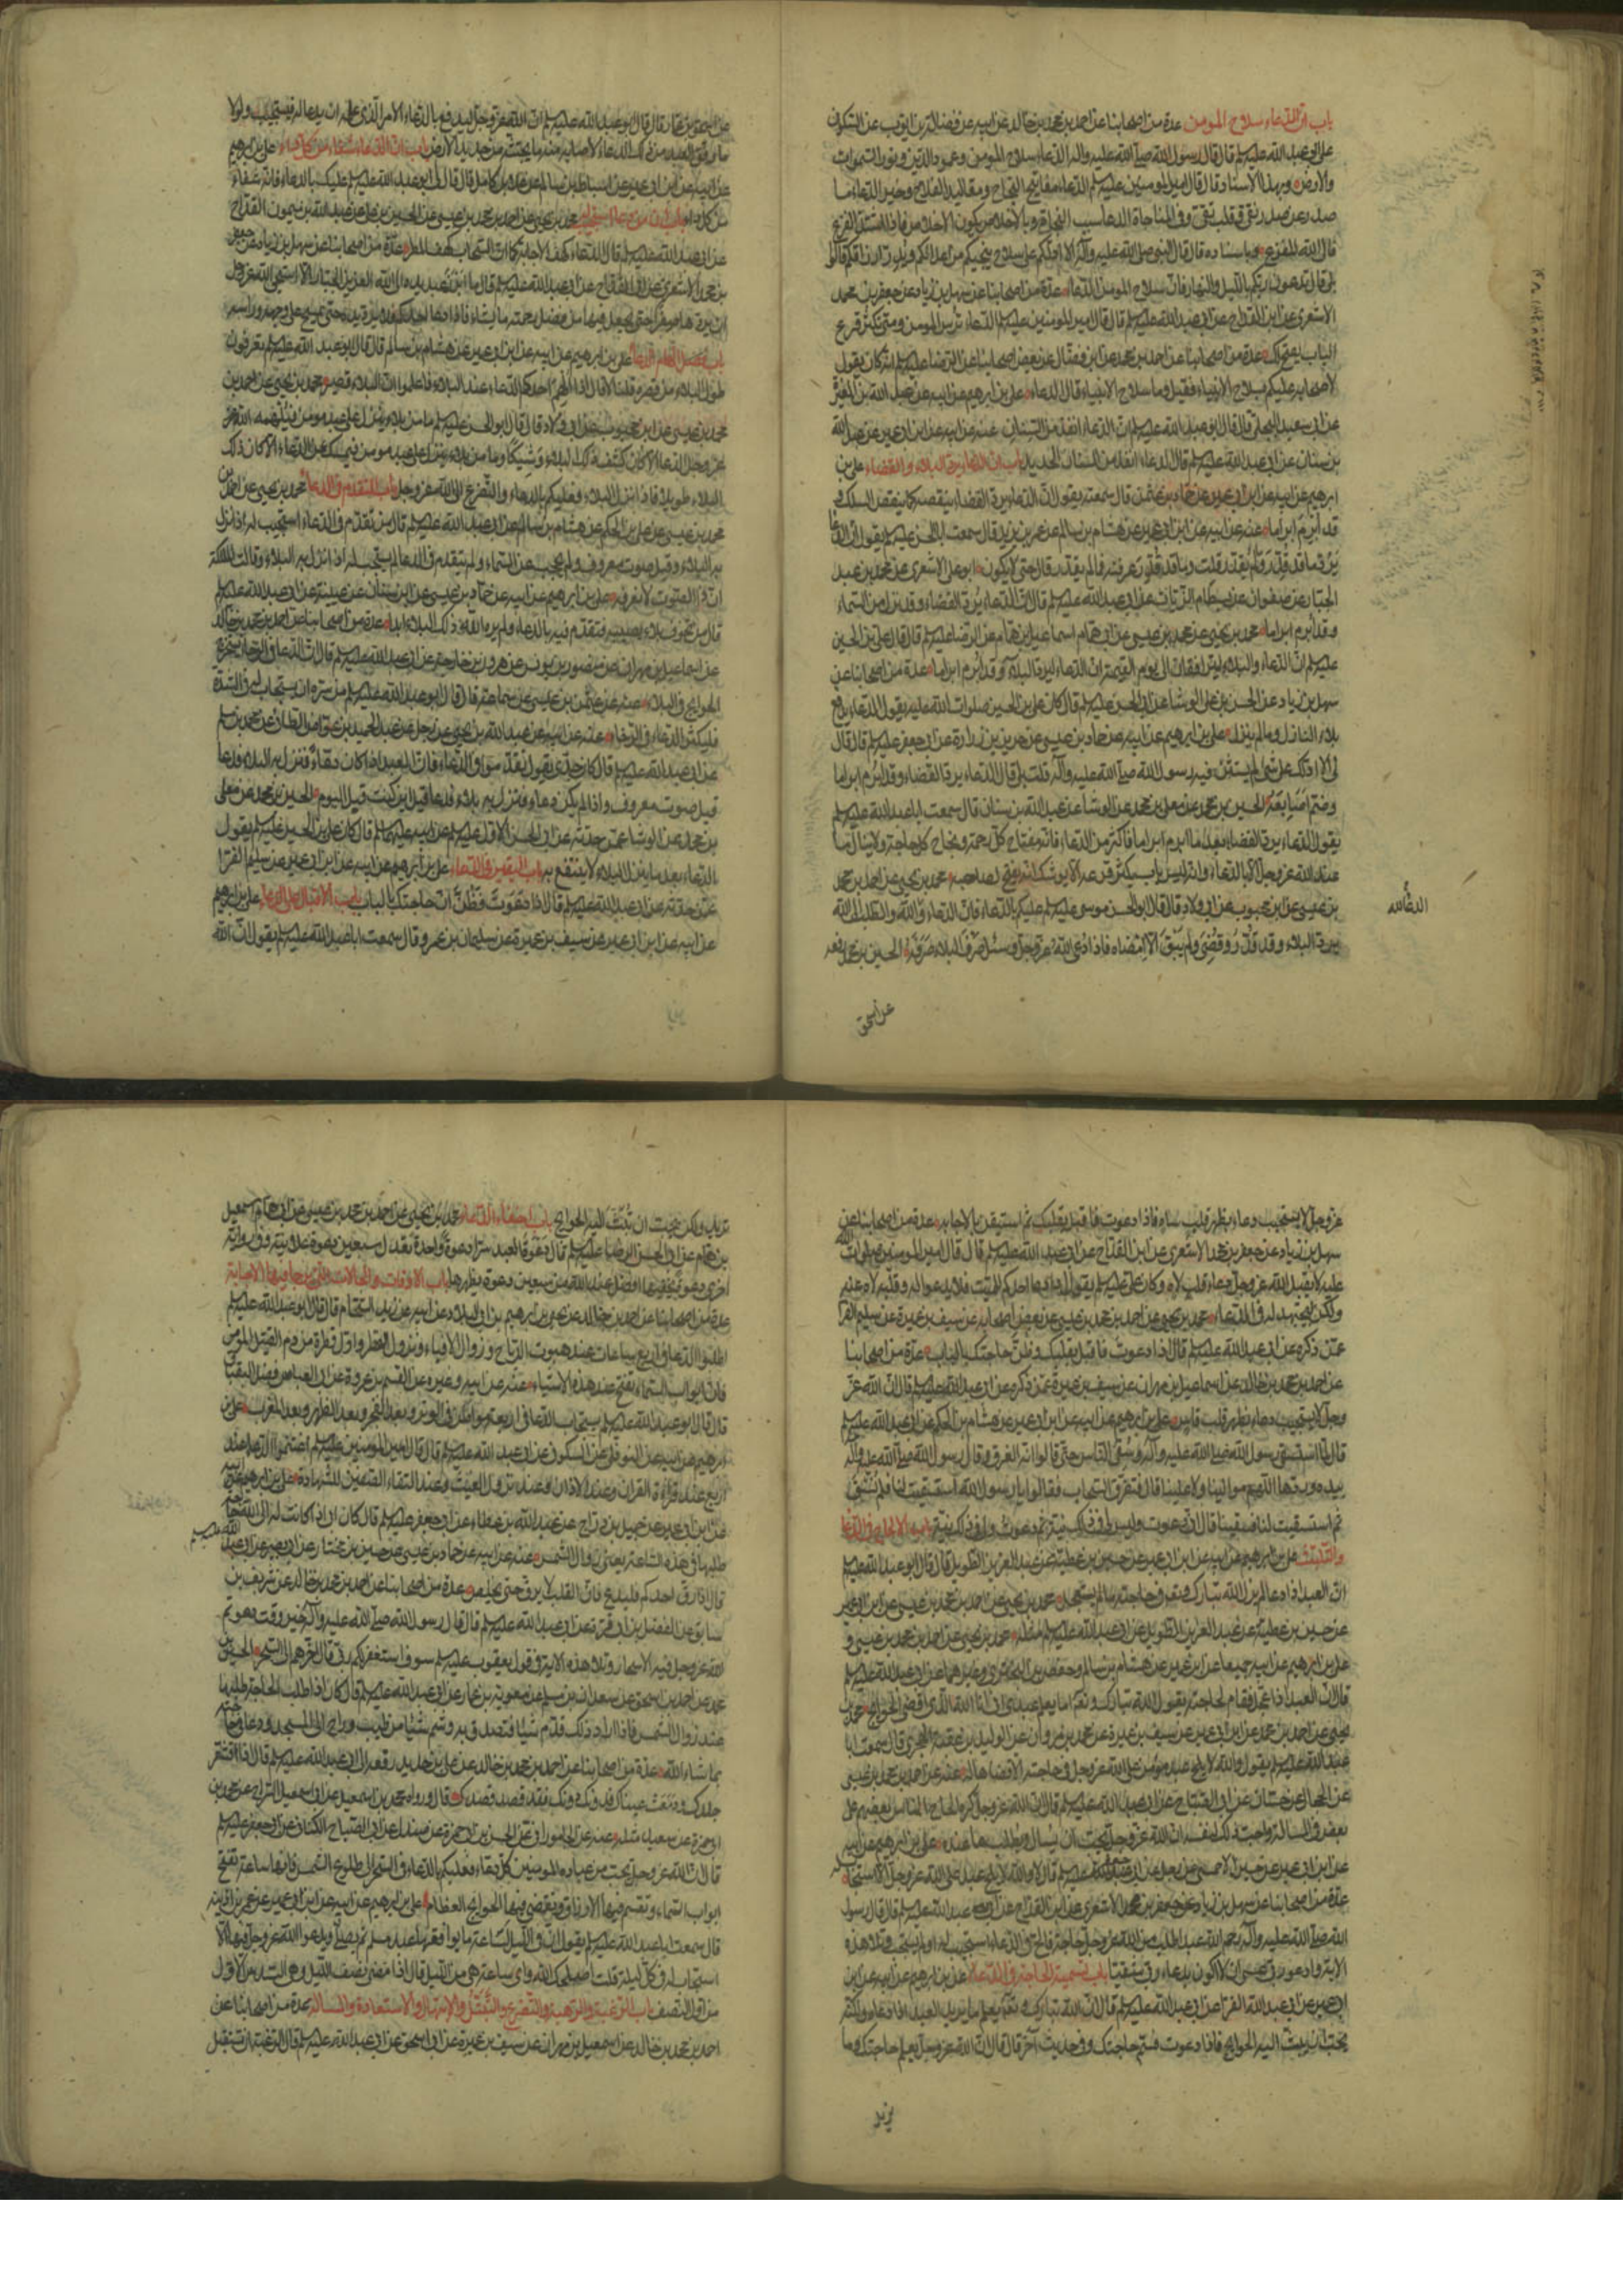 باب ان الدعاء سلاح المومن عدة من اصحابنا عن احمد بن محمد بن خالد عن ابيه عن فضالة بن ايوب عن السكونى
عن ابى عبد الله عليه السلم قال قال رسول الله صلى الله عليه واله الدعاء سلاح المومن وعمود الدين ونور السموات
والارض وبهذا الاسناد قال قال امير المومنين عليه السلم الدعاء مفاتيح النجاح ومقاليد الفلاح وخير الدعاء ما
صدر عن صدر نقى وقلب تقى وفى المناجاة سبب النجاة وبالاخلاص يكون الخلاص فاذا اشتد الفزع
فالى الله المفزع وباسناده قال قال النبى صلى الله عليه وآله الا ادلكم على سلاح ينجيكم من اعدائكم ويدر ارزاقكم قالوا
بلى قال تدعون ربكم بالليل والنهار فان سلاح المومن الدعاء عدة من اصحابنا عن سهل بن زياد عن جعفر بن محمد
الاشعرى عن ابن القداح عن ابى عبد الله عليه السلم قال قال امير المومنين عليه السلم الدعاء ترس المومن ومتى تكثر قرع
الباب يفتح لك عدة من اصحابنا عن احمد بن محمد عن ابن فضال عن بعض اصحابنا عن الرضا عليه السلم انه كان يقول
لاصحابه عليكم بسلاح الانبياء فقيل وما سلاح الانبياء قال الدعاء على بن ابرهيم عن ابيه عن عبد الله بن المغيرة
عن ابى سعيد البجلى قال قال ابو عبد الله عليه السلم ان الدعاء انفذ من السنان عنه عن ابيه عن ابن ابى عمير عن عبد الله
بن سنان عن ابى عبد الله عليه السلم قال الدعاء انفذ من السنان الحديد باب ان الدعاء يرد البلاء والقضاء على بن
ابرهيم عن ابيه عن ابن ابى عمير عن حماد بن عثمن قال سمعته يقول ان الدعاء يرد القضاء ينقضه كما ينقض السلك و
قد ابرم ابراما عنه عن ابيه عن ابن ابى عمير عن هشام بن سالم عن عمر بن يزيد قال سمعت ابا الحسن عليه السلم يقول ان الدعا
يرد ما قد قدر وما لم يقدر قلت وما قد قدر عرفته فما لم يقدر قال حتى لا يكون ابو على الاشعرى عن محمد بن عبد
الجبار عن صفوان عن بسطام الزيات عن ابى عبد الله عليه السلم قال ان الدعاء يرد القضاء وقد نزل من السماء
وقد ابرم ابراما محمد بن يحيى عن محمد بن عيسى عن ابى همام اسماعيل بن همام عن الرضا عليه السلم قال قال على بن الحسين
عليه السلم ان الدعاء والبلاء ليترافقان الى يوم القيمة ان الدعاء ليرد البلاء وقد ابرم ابراما عدة من اصحابنا عن
سهل بن زياد عن الحسن بن على الوشا عن ابى الحسن عليه السلم قال كان على بن الحسين صلوات الله عليه يقول الدعاء يدفع
بلاء النازل وما لم ينزل على بن ابرهيم عن ابيه عن حماد بن عيسى عن حريز عن زرارة عن ابى جعفر عليه السلم قال قال
لى الا ادلك على شئ لم يستثن فيه رسول الله صلى الله عليه وآله قلت بلى قال الدعاء يرد القضاء وقد ابرم ابراما
وضم اصابعه الحسين بن محمد عن معلى بن محمد عن الوشا عن عبد الله بن سنان قال سمعت ابا عبد الله عليه السلم
يقول الدعاء يرد القضاء بعد ما ابرم ابراما فاكثر من الدعاء فانه مفتاح كل رحمة ونجاح كل حاجة ولا ينال ما
عند الله عز وجل الا بالدعاء وانه ليس باب يكثر قرعه الا يوشك ان يفتح لصاحبه محمد بن يحيى عن احمد بن محمد
بن عيسى عن ابن محبوب عن ابى ولاد قال قال ابو الحسن موسى عليه السلم عليكم بالدعاء فان الدعاء لله والطلب الى الله
يرد البلاء وقد قدر وقضى ولم يبق الا امضاءه فاذا دعى الله عز وجل وسئل صرف البلاء صرفه الحسين بن محمد رفعه
الدعا لله
عن اسحق
عن اسحق بن عمار قال قال ابو عبد الله عليه السلم ان الله عز وجل ليدفع بالدعاء الامر الذى علمه ان يدعا له فيستجيب ولولا
ما وفق العبد من ذلك الدعاء لاصابه منه ما يجتثه من جديد الارض باب ان الدعاء شفاء من كل داء على بن ابرهيم
عن ابيه عن ابن ابى عمير عن اسباط بن سالم عن علاء بن كامل قال قال لى ابو عبد الله عليه السلم عليك بالدعاء فانه شفاء
من كل داء باب ان من دعا استجيب له محمد بن يحيى عن احمد بن محمد بن عيسى عن الحسن بن على عن عبد الله بن ميمون القداح
عن ابى عبد الله عليه السلم قال الدعاء كهف الاجابة كما ان السحاب كهف المطر عدة من اصحابنا عن سهل بن زياد عن جعفر
بن محمد الاشعرى عن ابن القداح عن ابى عبد الله عليه السلم قال ما ابرز عبد يده الى الله العزيز الجبار الا استحيى الله عز وجل
ان يردها صفرا حتى يجعل فيها من فضل رحمته ما يشاء فاذا دعا احدكم فلا يرد يده حتى يمسح على وجهه وراسه
باب فضل الهام الدعا على بن ابرهيم عن ابيه عن ابن ابى عمير عن هشام بن سالم قال قال ابو عبد الله عليه السلم هل تعرفون
طول البلاء من قصره قلنا لا قال اذا الهم احدكم الدعاء عند البلاء فاعلموا ان البلاء قصير محمد بن يحيى عن احمد بن
محمد بن عيسى عن ابن محبوب عن ابى ولاد قال قال ابو الحسن عليه السلم ما من بلاء ينزل على عبد مومن فيلهمه الله
عز وجل الدعاء الا كان كشف ذلك البلاء وشيكا وما من بلاء ينزل على عبد مومن فيمسك عن الدعاء الا كان ذلك
البلاء طويلا فاذا نزل البلاء فعليكم بالدعاء والتضرع الى الله عز وجل باب التقدم فى الدعا محمد بن يحيى عن احمد بن
محمد بن عيسى عن على بن الحكم عن هشام بن سالم عن ابى عبد الله عليه السلم قال من تقدم فى الدعاء استجيب له اذا نزل
به البلاء وقيل صوت معروف ولم يحجب عن السماء ومن لم يتقدم فى الدعا لم يستجب له اذا نزل به البلاء وقالت الملئكة
ان ذا الصوت لا نعرفه على بن ابرهيم عن ابيه عن حماد بن عيسى عن ابن سنان عن عنبسة عن ابى عبد الله عليه السلم
قال من تخوف بلاء يصيبه فتقدم فيه بالدعاء لم يره الله ذلك البلاء ابدا عدة من اصحابنا عن احمد بن محمد بن خالد
عن اسماعيل بن مهران عن منصور بن يونس عن هرون بن خارجة عن ابى عبد الله عليه السلم قال ان الدعا فى الرخا يستخرج
الحوائج فى البلاء عنه عن عثمن بن عيسى عن سماعة قال قال ابو عبد الله عليه السلم من سره ان يستجاب له فى الشدة
فليكثر الدعاء فى الرخاء عنه عن ابيه عن عبد الله بن يحيى عن رجل عن عبد الحميد بن غواص الطائى عن محمد بن مسلم
عن ابى عبد الله عليه السلم قال كان جدى يقول تقدموا فى الدعاء فان العبد اذا كان دعاء فنزل به البلاء فدعا
قيل صوت معروف واذا لم يكن دعاء فنزل به بلاء فدعا قيل اين كنت قبل اليوم الحسين بن محمد عن معلى
بن محمد عن الوشا عمن حدثه عن ابى الحسن الاول عليه السلم عن ابيه عليهما السلم قال كان على بن الحسين عليه السلم يقول
الدعاء بعد ما ينزل البلاء لا ينتفع به باب اليقين فى الدعاء على بن ابرهيم عن ابيه عن ابن ابى عمير عن سليم الفرا
عمن حدثه عن ابى عبد الله عليه السلم قال اذا دعوت فظن ان حاجتك بالباب باب الاقبال على الدعاء على بن ابرهيم
عن ابيه عن ابن ابى عمير عن سيف بن عميرة عن سليمان بن عمرو قال سمعت ابا عبد الله عليه السلم يقول ان الله
عز وجل لا يستجيب دعاء بظهر قلب ساه فاذا دعوت فاقبل بقلبك ثم استيقن بالاجابة عدة من اصحابنا عن
سهل بن زياد عن جعفر بن محمد الاشعرى عن ابن القداح عن ابى عبد الله عليه السلم قال قال امير المومنين صلوات الله
عليه لا يقبل الله عز وجل دعاء قلب لاه وكان على عليه السلم يقول اذا دعا احدكم للميت فلا يدعو له وقلبه لاه عنه
ولكن ليجتهد له فى الدعاء محمد بن يحيى عن احمد بن محمد بن عيسى عن بعض اصحابه عن سيف بن عميرة عن سليم الفرا
عمن ذكره عن ابى عبد الله عليه السلم قال اذا دعوت فاقبل بقلبك وظن حاجتك بالباب عدة من اصحابنا
عن احمد بن محمد بن خالد عن اسماعيل بن مهران عن سيف بن عميرة عمن ذكره عن ابى عبد الله عليه السلم قال ان الله عز
وجل لا يستجيب دعاء بظهر قلب قاس على بن ابرهيم عن ابيه عن ابن ابى عمير عن هشام بن الحكم عن ابى عبد الله عليه السلم
قال لما استسقى رسول الله صلى الله عليه وآله وسقى الناس حتى قالوا انه الغرق وقال رسول الله صلى الله عليه وآله
بيده وردها اللهم حوالينا ولا علينا قال فتفرق السحاب فقالوا يا رسول الله استسقيت لنا فلم نسق
ثم استسقيت لنا فسقينا قال انى دعوت وليس لى فى ذلك نية ثم دعوت ولى فى ذلك نية باب الالحاح فى الدعا
والتلبث على بن ابرهيم عن ابيه عن ابن ابى عمير عن حسين بن عطية عن عبد العزيز الطويل قال قال ابو عبد الله عليه السلم
ان العبد اذا دعا لم يزل الله تبارك وتعالى فى حاجته ما لم يستعجل محمد بن يحيى عن احمد بن محمد بن عيسى عن ابن ابى عمير
عن حسين بن عطية عن عبد العزيز الطويل عن ابى عبد الله عليه السلم مثله محمد بن يحيى عن احمد بن محمد بن عيسى و
على بن ابرهيم عن ابيه جميعا عن ابن ابى عمير عن هشام بن سالم وحفص بن البخترى وغيرهما عن ابى عبد الله عليه السلم
قال ان العبد اذا عجل فقام لحاجته يقول الله تبارك وتعالى اما يعلم عبدى انى انا الله الذى اقضى الحوائج محمد بن
يحيى عن احمد بن محمد عن ابن ابى عمير عن سيف بن عميرة عن محمد بن مروان عن الوليد بن عقبة الهجرى قال سمعت ابا
عبد الله عليه السلم يقول والله لا يلح عبد مومن على الله عز وجل فى حاجته الا قضاها له عنه عن احمد بن محمد بن عيسى
عن الحجال عن حسان عن ابى الصباح عن ابى عبد الله عليه السلم قال ان الله عز وجل كره الحاح الناس بعضهم على
بعض فى المسالة واحب ذلك لنفسه ان الله عز وجل يحب ان يسال ويطلب ما عنده على بن ابرهيم عن ابيه
عن ابن ابى عمير عن حسين الاحمسى عن رجل عن ابى جعفر عليه السلم قال لا والله لا يلح عبد على الله عز وجل الا استجاب له
عدة من اصحابنا عن سهل بن زياد عن جعفر بن محمد الاشعرى عن ابن القداح عن ابى عبد الله عليه السلم قال قال رسول
الله صلى الله عليه وآله رحم الله عبدا طلب من الله عز وجل حاجة فالح فى الدعاء استجيب له او لم يستجب وتلا هذه
الاية وادعو ربى عسى ان لا اكون بدعاء ربى شقيا باب تسمية الحاجة فى الدعاء على بن ابرهيم عن ابيه عن ابن
ابى عمير عن ابى عبد الله الفرا عن ابى عبد الله عليه السلم قال ان الله تبارك وتعالى يعلم ما يريد العبد اذا دعاه ولكنه
يحب ان يبث اليه الحوائج فاذا دعوت فسم حاجتك وفى حديث آخر قال قال ان الله عز وجل يعلم حاجتك وما
تريد
تريد ولكن يحب ان تبث اليه الحوائج باب اخفاء الدعاء محمد بن يحيى عن احمد بن محمد بن عيسى عن ابى همام اسمعيل
بن همام عن ابى الحسن الرضا عليه السلم قال دعوة العبد سرا دعوة واحدة تعدل سبعين دعوة علانية وفى رواية
اخرى دعوة تخفيها افضل عند الله من سبعين دعوة تظهرها باب الاوقات والحالات التى ترجا فيها الاجابة
عدة من اصحابنا عن احمد بن محمد بن خالد عن يحيى بن ابرهيم بن ابى البلاد عن ابيه عن زيد الشحام قال قال ابو عبد الله عليه السلم
اطلبوا الدعا فى اربع ساعات عند هبوب الرياح وزوال الافياء ونزول القطر واول قطرة من دم القتيل المومن
فان ابواب السماء تفتح عند هذه الاشياء عنه عن ابيه وغيره عن القسم بن عروة عن ابى العباس فضل البقباق
قال قال ابو عبد الله عليه السلم يستجاب الدعا فى اربعة مواطن فى الوتر وبعد الفجر وبعد الظهر وبعد المغرب على بن
ابرهيم عن ابيه عن النوفلى عن السكونى عن ابى عبد الله عليه السلم قال قال امير المومنين عليه السلم اغتنموا الدعا عند
اربع عند قراءة القران وعند الاذان وعند نزول الغيث وعند التقاء الصفين للشهادة على بن ابرهيم عن ابيه
عن ابن ابى عمير عن جميل بن دراج عن عبد الله بن عطاء عن ابى جعفر عليه السلم قال كان ابى اذا كانت له الى الله حاجة
طلبها فى هذه الساعة يعنى زوال الشمس عنه عن ابيه عن حماد بن عيسى عن حسين بن مختار عن ابى بصير عن ابى عبد الله عليه السلم
قال اذا رق احدكم فليدع فان القلب لا يرق حتى يخلص عدة من اصحابنا عن احمد بن محمد بن خالد عن شريف بن
سابق عن الفضل بن ابى قرة عن ابى عبد الله عليه السلم قال قال رسول الله صلى الله عليه وآله خير وقت دعوتم
الله عز وجل فيه الاسحار وتلا هذه الاية فى قول يعقوب عليه السلم سوف استغفر لكم ربى قال اخرهم الى السحر الحسين بن
محمد عن احمد بن اسحق عن سعدان بن مسلم عن معوية بن عمار عن ابى عبد الله عليه السلم قال كان اذا طلب الحاجة طلبها
عند زوال الشمس فاذا اراد ذلك قدم شيئا فتصدق به وشم شيئا من طيب وراح الى المسجد ودعا فى حاجته
بما شاء الله عدة من اصحابنا عن احمد بن محمد بن خالد عن على بن حديد رفعه الى ابى عبد الله عليه السلم قال اذا اقشعر
جلدك ودمعت عيناك فدونك دونك فقد قصد قصدك قال ورواه محمد بن اسمعيل عن ابى اسمعيل السراج عن محمد بن
ابى حمزة عن سعيد مثله عنه عن الجامورانى عن الحسن بن ابى حمزة عن صندل عن ابى الصباح الكنانى عن ابى جعفر عليه السلم
قال ان الله عز وجل يحب من عباده المومنين كل دعاء فعليكم بالدعاء فى السحر الى طلوع الشمس فانها ساعة تفتح
ابواب السماء وتقسم فيها الارزاق وتقضى فيها الحوائج العظام على بن ابرهيم عن ابيه عن ابن ابى عمير عن عمر بن اذينة
قال سمعت ابا عبد الله عليه السلم يقول ان فى الليل لساعة ما يوافقها عبد مسلم ثم يصلى ويدعو الله عز وجل فيها الا
استجاب له فى كل ليلة قلت اصلحك الله واى ساعة هى من الليل قال اذا مضى نصف الليل وهى السدس الاول
من اول النصف باب الرغبة والرهبة والتضرع والتبتل والابتهال والاستعاذة والمسالة عدة من اصحابنا عن
احمد بن محمد بن خالد عن اسمعيل بن مهران عن سيف بن عميرة عن ابى اسحق عن ابى عبد الله عليه السلم قال الرغبة ان تستقبل